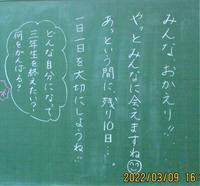 みんな、おかえり!!
やっとみんなに会えますね
あっという間に、残り10日…。
一日一日を大切にしようね!!
どんな自分になって
三年生を終えたい?
何をがんばる?
2022/03/09 16